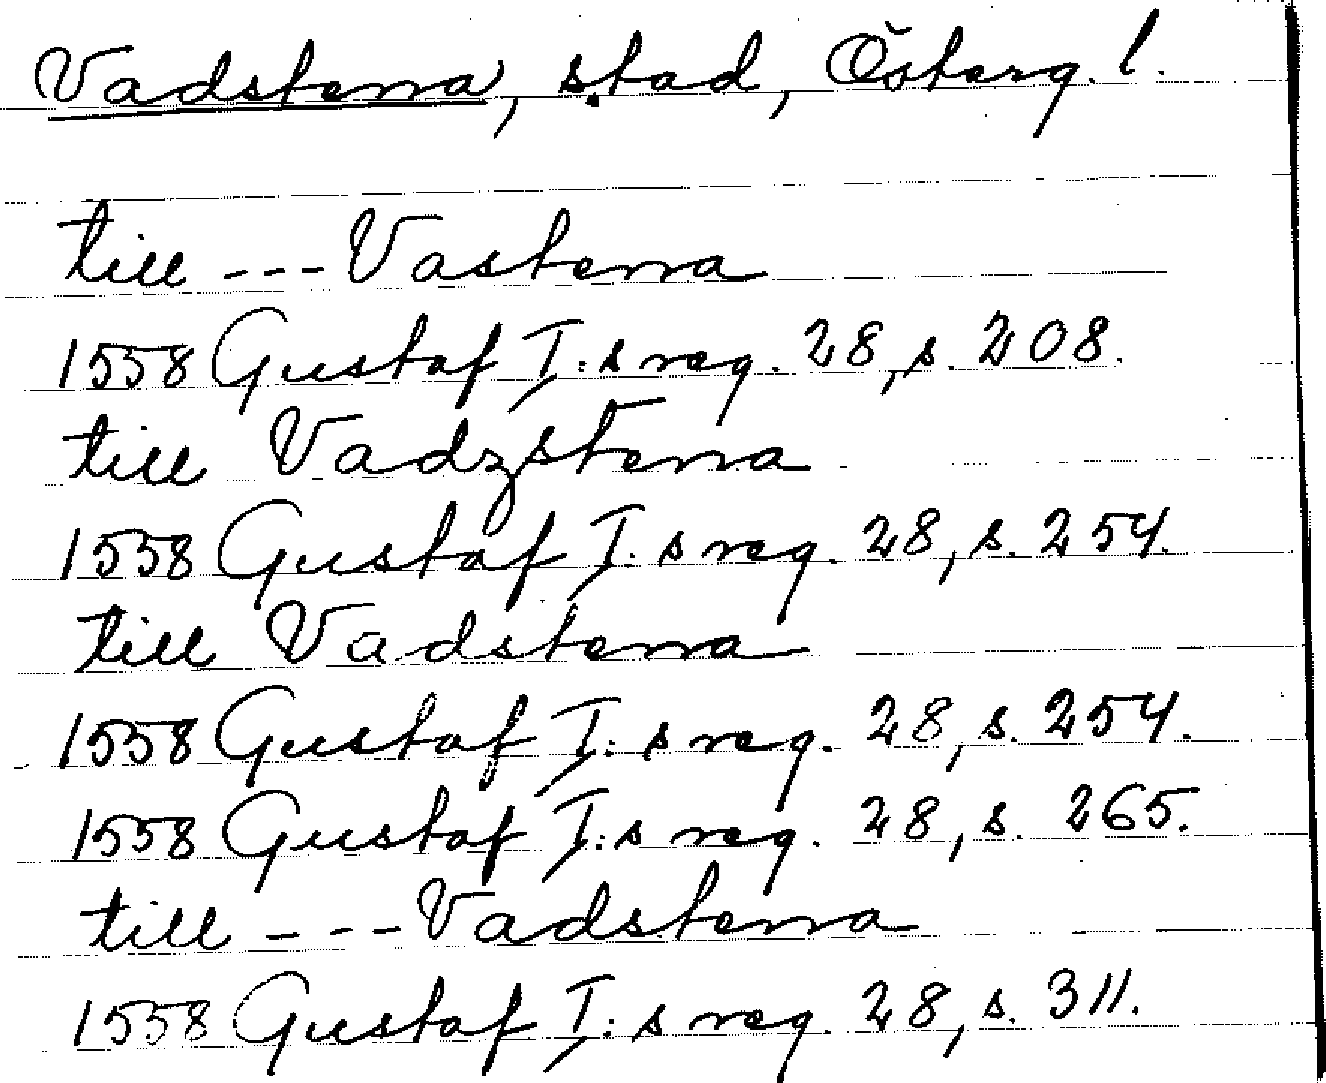 Vadstena, stad, Österg. l.
till --- Vastena
1558 Gustaf I:s reg. 28, s. 208.
till Vadzstena
1558 Gustaf I:s reg. 28, s. 254.
till Vadstena
1558 Gustaf I:s reg. 28, s. 254.
1558 Gustaf I:s reg. 28, s. 265.
till --- Vadstena
1558 Gustaf I:s reg. 28, s. 311.